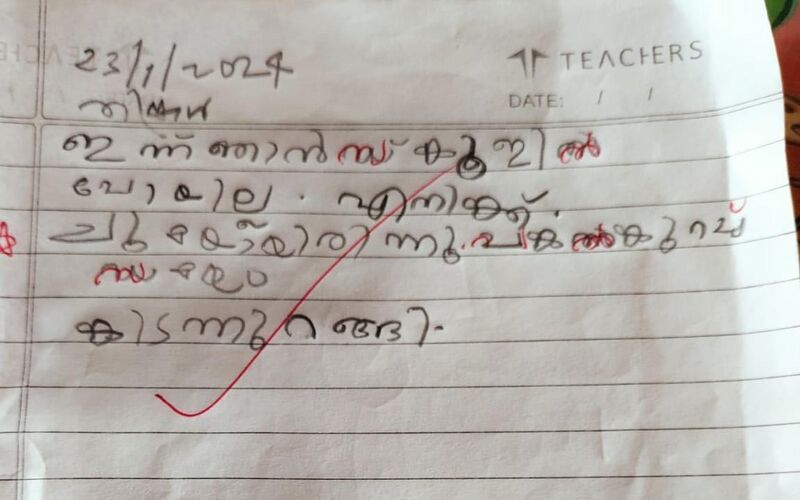 23/1/2024
TEACHERS
DATE: / /
തിങ്കൾ
ഇന്ന് ഞാൻ സ്കൂളിൽ
പോയില. എനിക്ക്.
ചുമയായിരുന്നു. പകൽ കുറച്ച്
സമയം
കിടന്നുറങ്ങി.